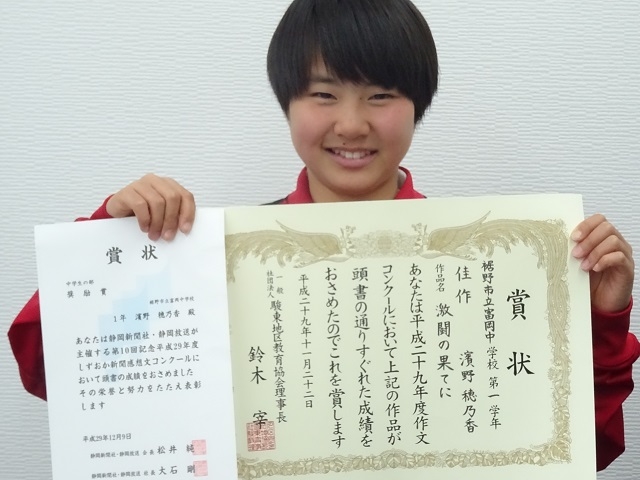 賞状
中学生の部
奨励賞
裾野市立富岡中学校
1年 濱野 穂乃香 殿
あなたは静岡新聞社・静岡放送が
主催する第10回記念平成29年度
しずおか新聞感想文コンクールに
おいて頭書の成績をおさめました
その栄誉と努力をたたえ表彰
します
平成29年12月9日
静岡新聞社・静岡放送 会長 松井 純
静岡新聞社・静岡放送 社長 大石 剛
賞状
裾野市立富岡中学校 第一学年
濱野 穂乃香
佳作
作品名 激闘の果てに
あなたは平成二十九年度作文
コンクールにおいて上記の作品が
頭書の通りすぐれた成績を
おさめたのでこれを賞します
平成二十九年十一月二十二日
一般社団法人 駿東地区教育協会理事長
鈴木 宰